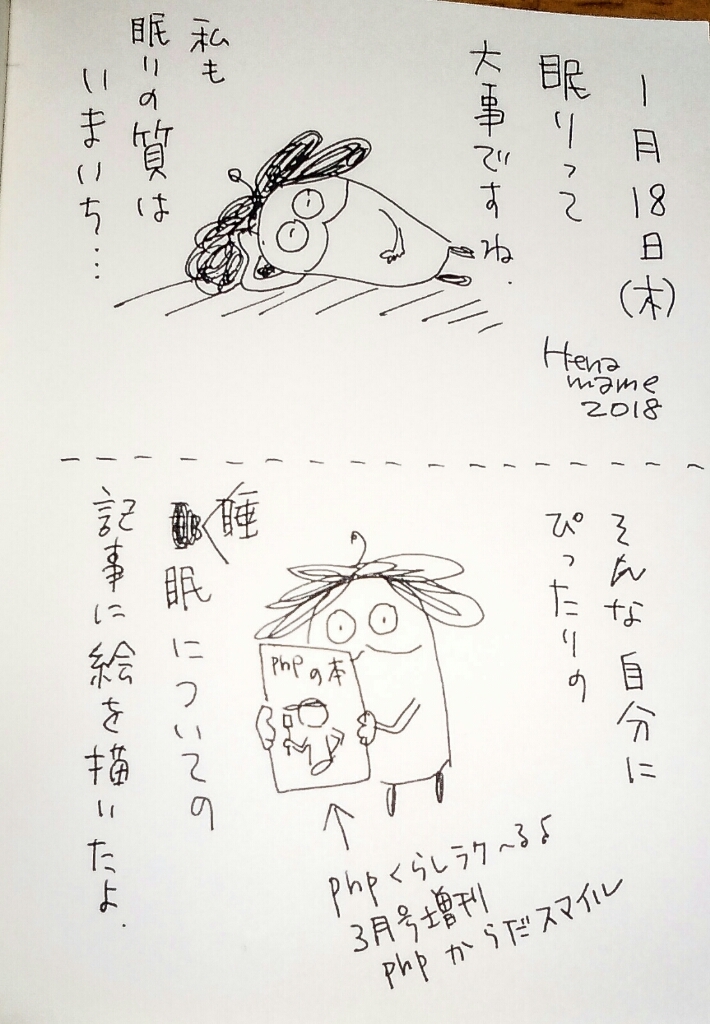 1月18日(木)
眠りって
大事ですね.
私も
眠りの質は
いまいち…
Hena
mame
2018
そんな自分に
ぴったりの
睡
眠についての
記事に絵を描いたよ.
phpの本
phpくらしラク〜る♪
3月号増刊
phpからだスマイル